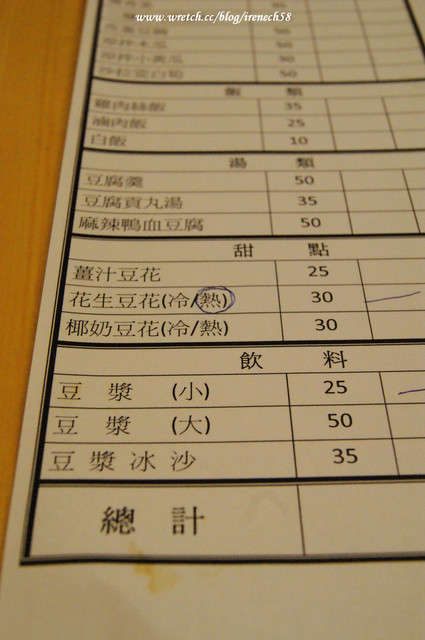 www.wretch.cc/blog/irenech58
50
50
飯 類
雞肉絲飯 35
滷肉飯 25
白飯 10
湯 類
豆腐羹 50
豆腐貢丸湯 35
麻辣鴨血豆腐 50
甜 點
薑汁豆花 25
花生豆花(冷/熱) 30
椰奶豆花(冷/熱) 30
飲 料
豆 漿 (小) 25
豆 漿 (大) 50
豆 漿 冰 沙 35
總 計